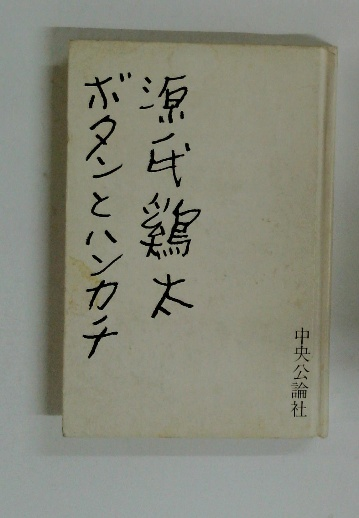 源氏鶏太
ボタンとハンカチ
中央公論社